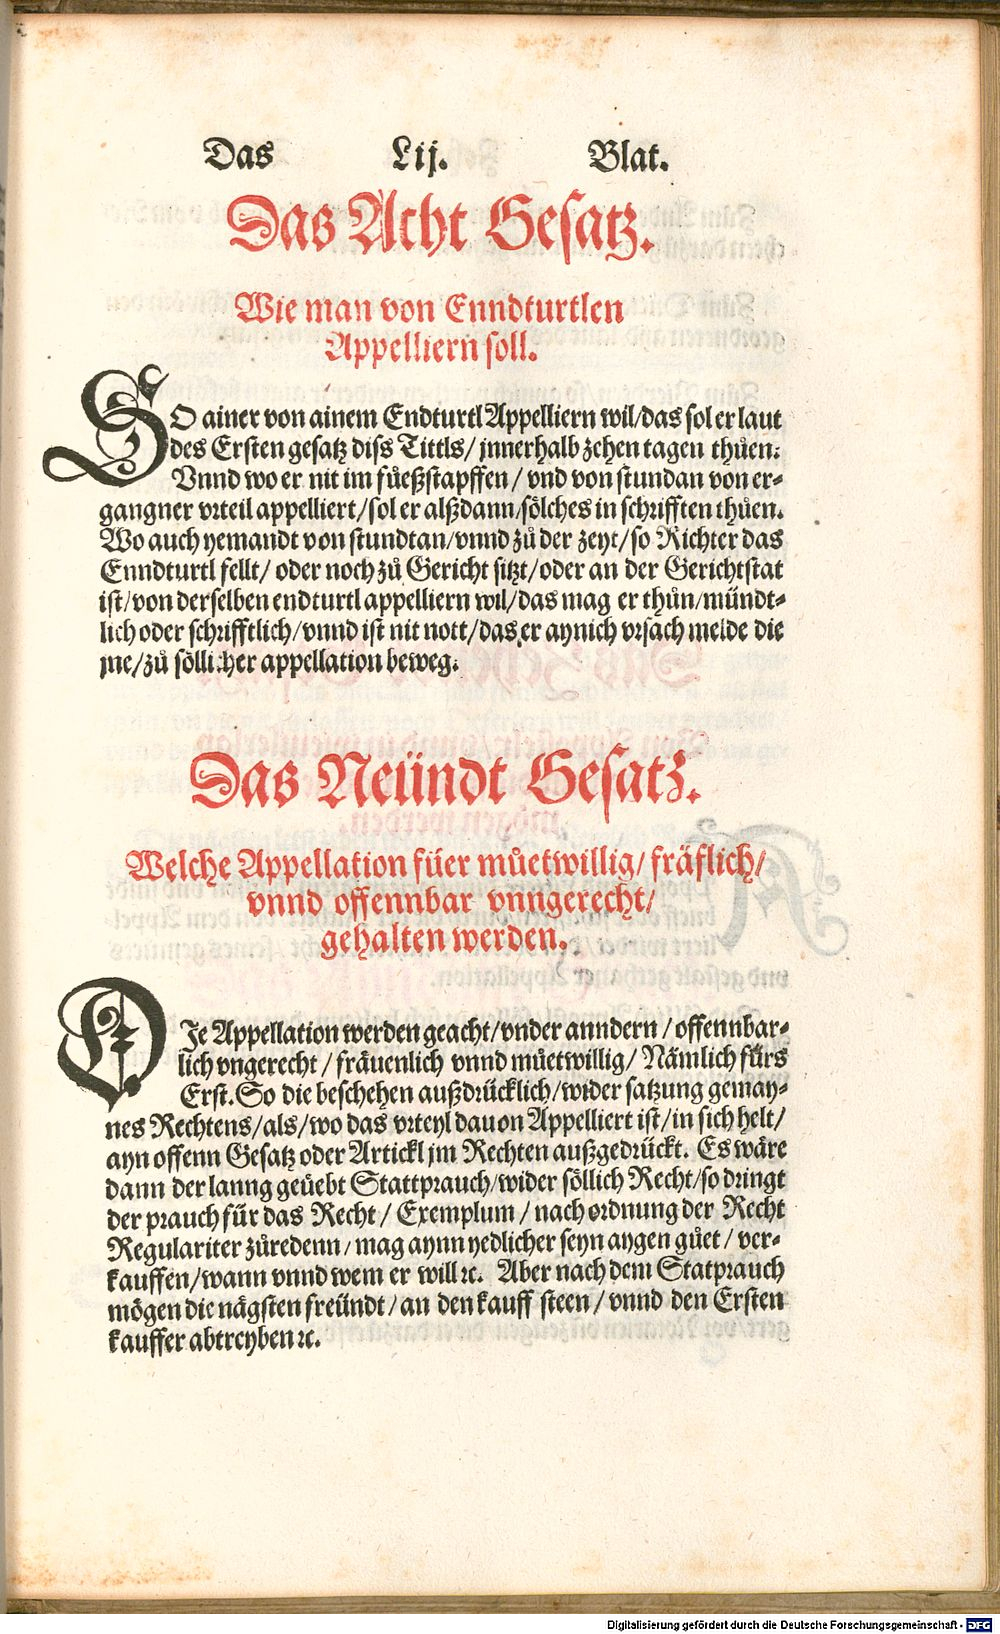 Das Lij. Blat.
Das Acht Gesatz.
Wie man von Enndturtlen
Appelliern soll.
SO ainer von ainem Endturtl Appelliern wil/das sol er laut
des Ersten gesatz diss Tittls/ jnnerhalb zehen tagen thůen.
Vnnd wo er nit im fůeßstapffen/ vnd von stundan von er-
gangner vrteil appelliert/sol er alßdann/sölches in schrifften thůen.
Wo auch yemandt von stundtan/vnnd zů der zeyt/so Richter das
Enndturtl fellt/ oder noch zů Gericht sitzt/oder an der Gerichtstat
ist/von derselben endturtl appelliern wil/das mag er thůn/mündt-
lich oder schrifftlich/vnnd ist nit nott/das er aynich vrsach melde die
jne/zů söllicher appellation beweg.
Das Neündt Gesatz.
Welche Appellation füer můetwillig/ fräflich/
vnnd offennbar vnngerecht/
gehalten werden.
DJe Appellation werden geacht/vnder anndern/ offennbar-
lich vngerecht/ fräuenlich vnnd můetwillig/ Nämlich fürs
Erst. So die beschehen außdrücklich/wider satzung gemay-
nes Rechtens/als/wo das vrteyl dauon Appelliert ist/in sich helt/
ayn offenn Gesatz oder Artickl jm Rechten außgedrückt. Es wäre
dann der lanng geüebt Stattprauch/wider söllich Recht/so dringt
der prauch für das Recht/ Exemplum/ nach ordnung der Recht
Regulariter zůredenn/ mag aynn yedlicher seyn aygen gůet/ ver-
kauffen/wann vnnd wem er will ꝛc. Aber nach dem Statprauch
mögen die nägsten freündt/ an den kauff steen/ vnnd den Ersten
kauffer abtreyben ꝛc.
Digitalisierung gefördert durch die Deutsche Forschungsgemeinschaft - DFG